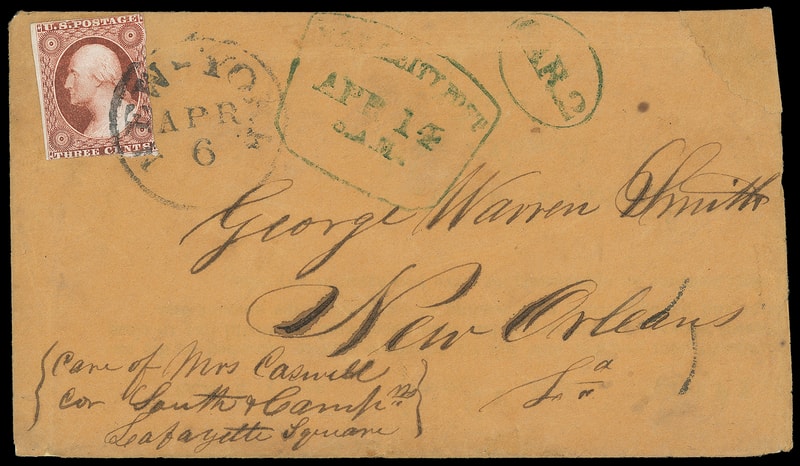 U.S. POSTAGE
THREE CENTS
NEW-YORK
APR
6
CITY POST
APR 14
8 A.M.
CAR. 2
George Warren Smith
New Orleans
La
Care of Mrs Caswell
Cor South & Camp
Lafayette Square